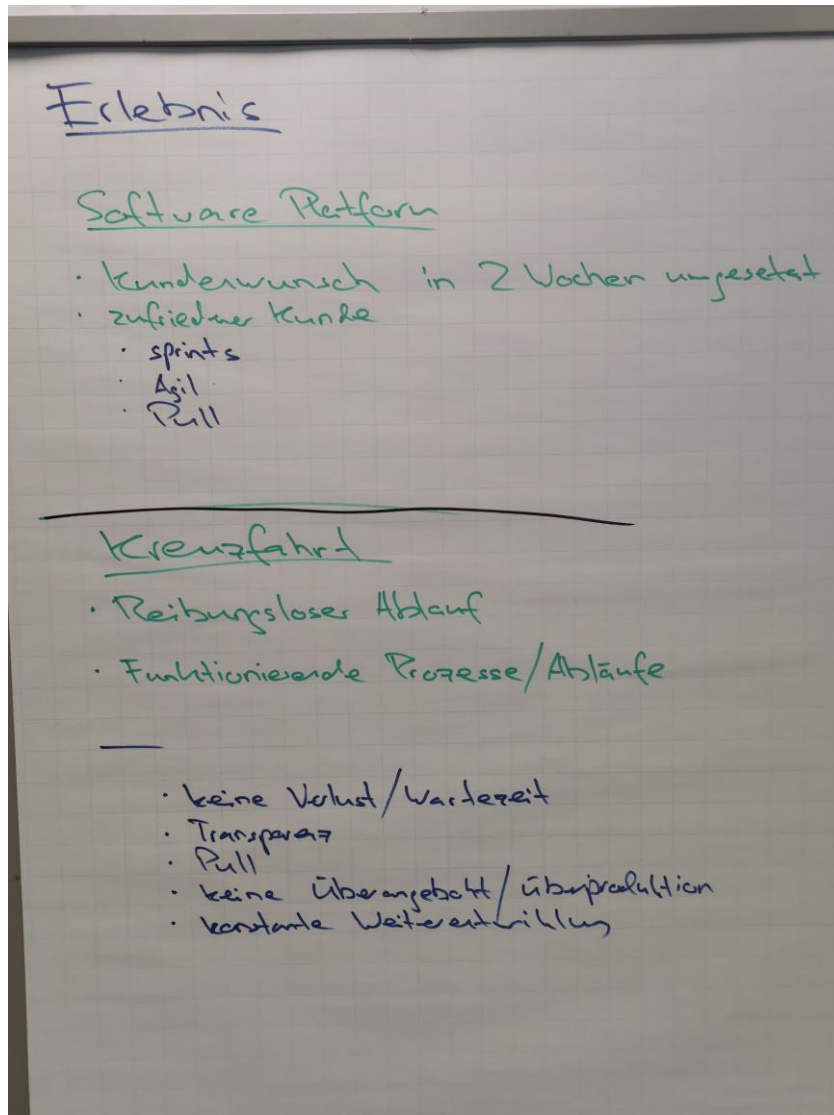 Erlebnis
Software Platform
· Kundenwunsch in 2 Wochen umgesetzt
· zufriedener Kunde
· sprints
· Agil
· Pull
Kreuzfahrt
· Reibungsloser Ablauf
· Funktionierende Prozesse/Abläufe
· keine Verlust/Wartezeit
· Transparenz
· Pull
· keine Überangebott/überproduktion
· konstante Weiterentwicklung